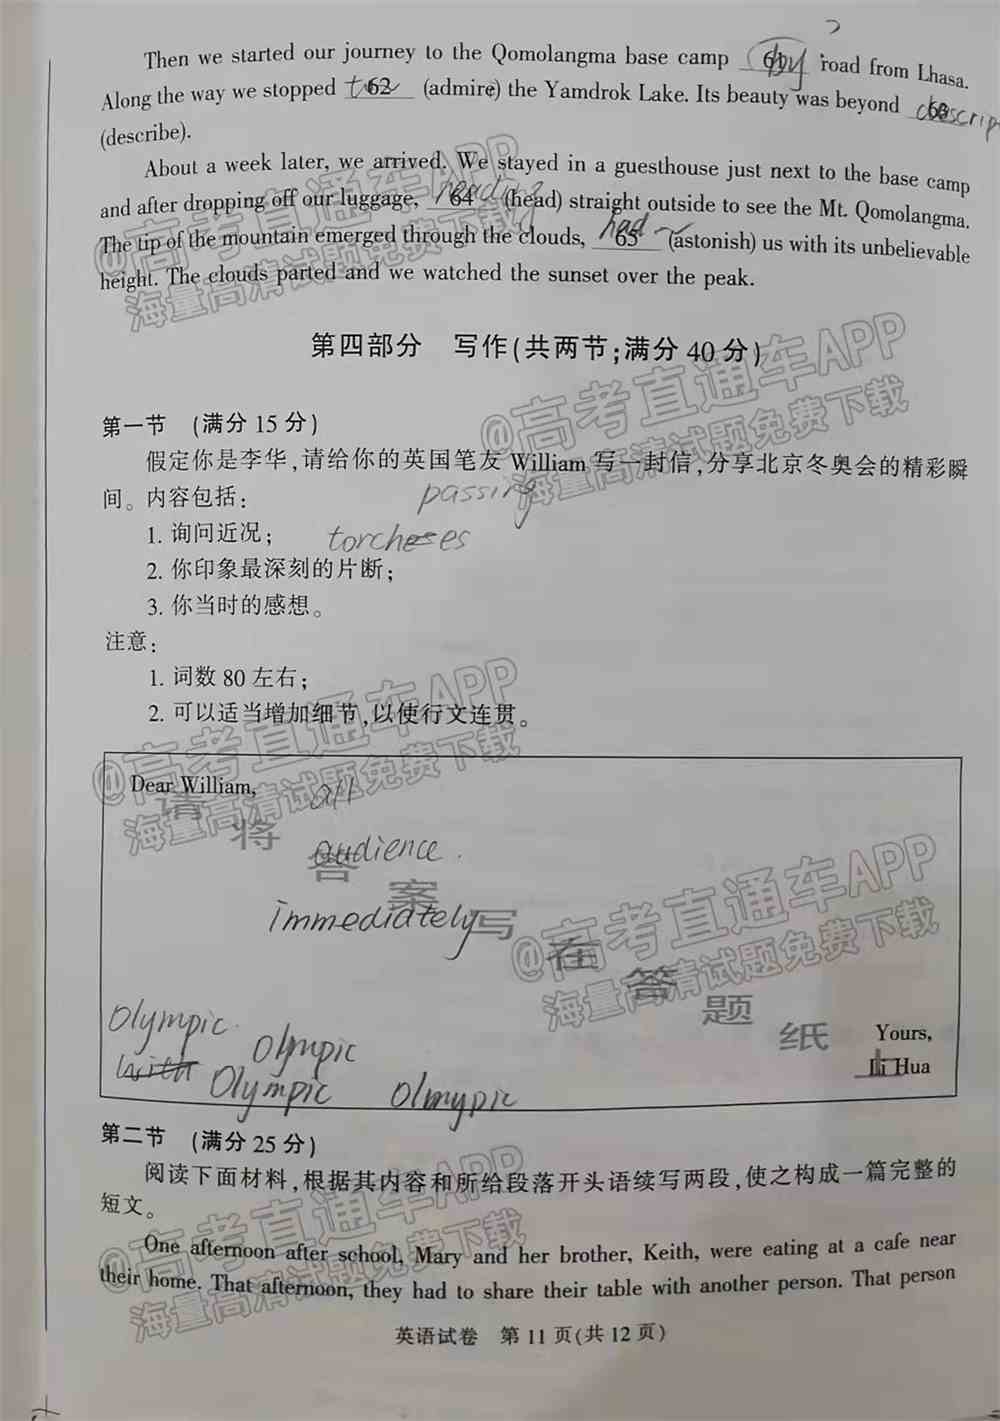 Then we started our journey to the Qomolangma base camp 61 by road from Lhasa.
Along the way we stopped 62 to (admire) the Yamdrok Lake. Its beauty was beyond 63 descrip
(describe).
About a week later, we arrived. We stayed in a guesthouse just next to the base camp
and after dropping off our luggage, 64 heading (head) straight outside to see the Mt. Qomolangma.
The tip of the mountain emerged through the clouds, 65 had (astonish) us with its unbelievable
height. The clouds parted and we watched the sunset over the peak.
@高考直通车APP
海量高清试题免费下载
第四部分 写作(共两节;满分40分)
@高考直通车APP
海量高清试题免费下载
第一节 (满分15分)
假定你是李华,请给你的英国笔友William写一封信,分享北京冬奥会的精彩瞬
间。内容包括:
passing
1. 询问近况;
torcheses
2. 你印象最深刻的片断;
3. 你当时的感想。
注意:
1. 词数80左右;
2. 可以适当增加细节,以使行文连贯。
@高考直通车APP
海量高清试题免费下载
Dear William,
all
audience.
immediately
请将答案写在答题纸
@高考直通车APP
海量高清试题免费下载
Olympic
Olympic
with Olympic Olmypic
Yours,
Li Hua
第二节 (满分25分)
阅读下面材料,根据其内容和所给段落开头语续写两段,使之构成一篇完整的
短文。
@高考直通车APP
海量高清试题免费下载
One afternoon after school, Mary and her brother, Keith, were eating at a cafe near
their home. That afternoon, they had to share their table with another person. That person
英语试卷 第11页(共12页)